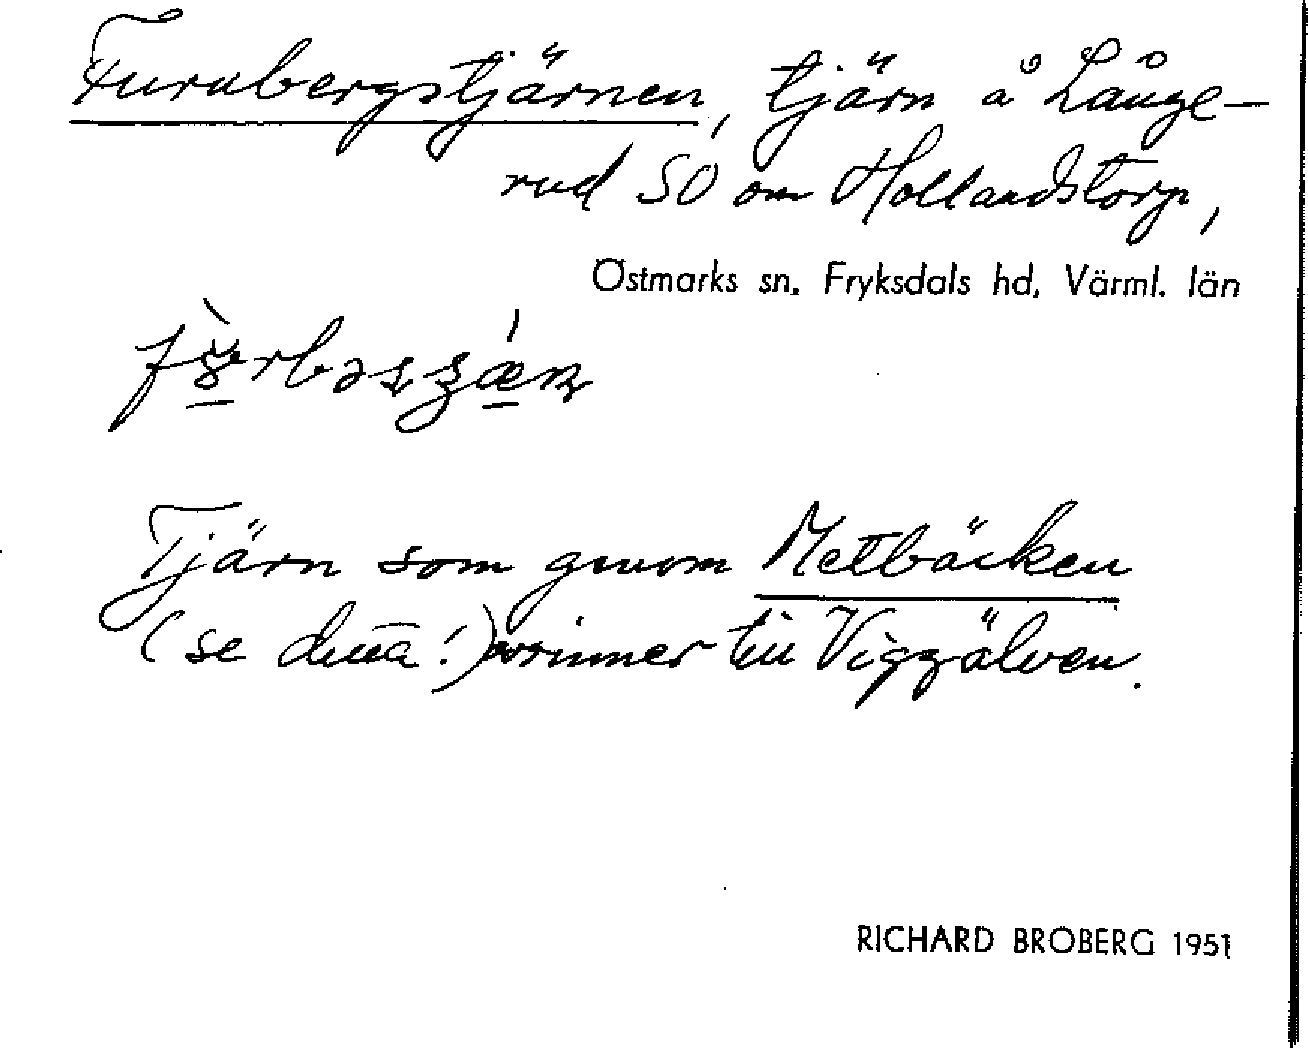 Furubergstjärnen, tjärn å Långe-
rud SO om Hollandstorp,
Östmarks sn. Fryksdals hd, Värml. län
Tjärn som genom Metbäcken
(se denna!) avrinner till Viggälven.
RICHARD BROBERG 1951